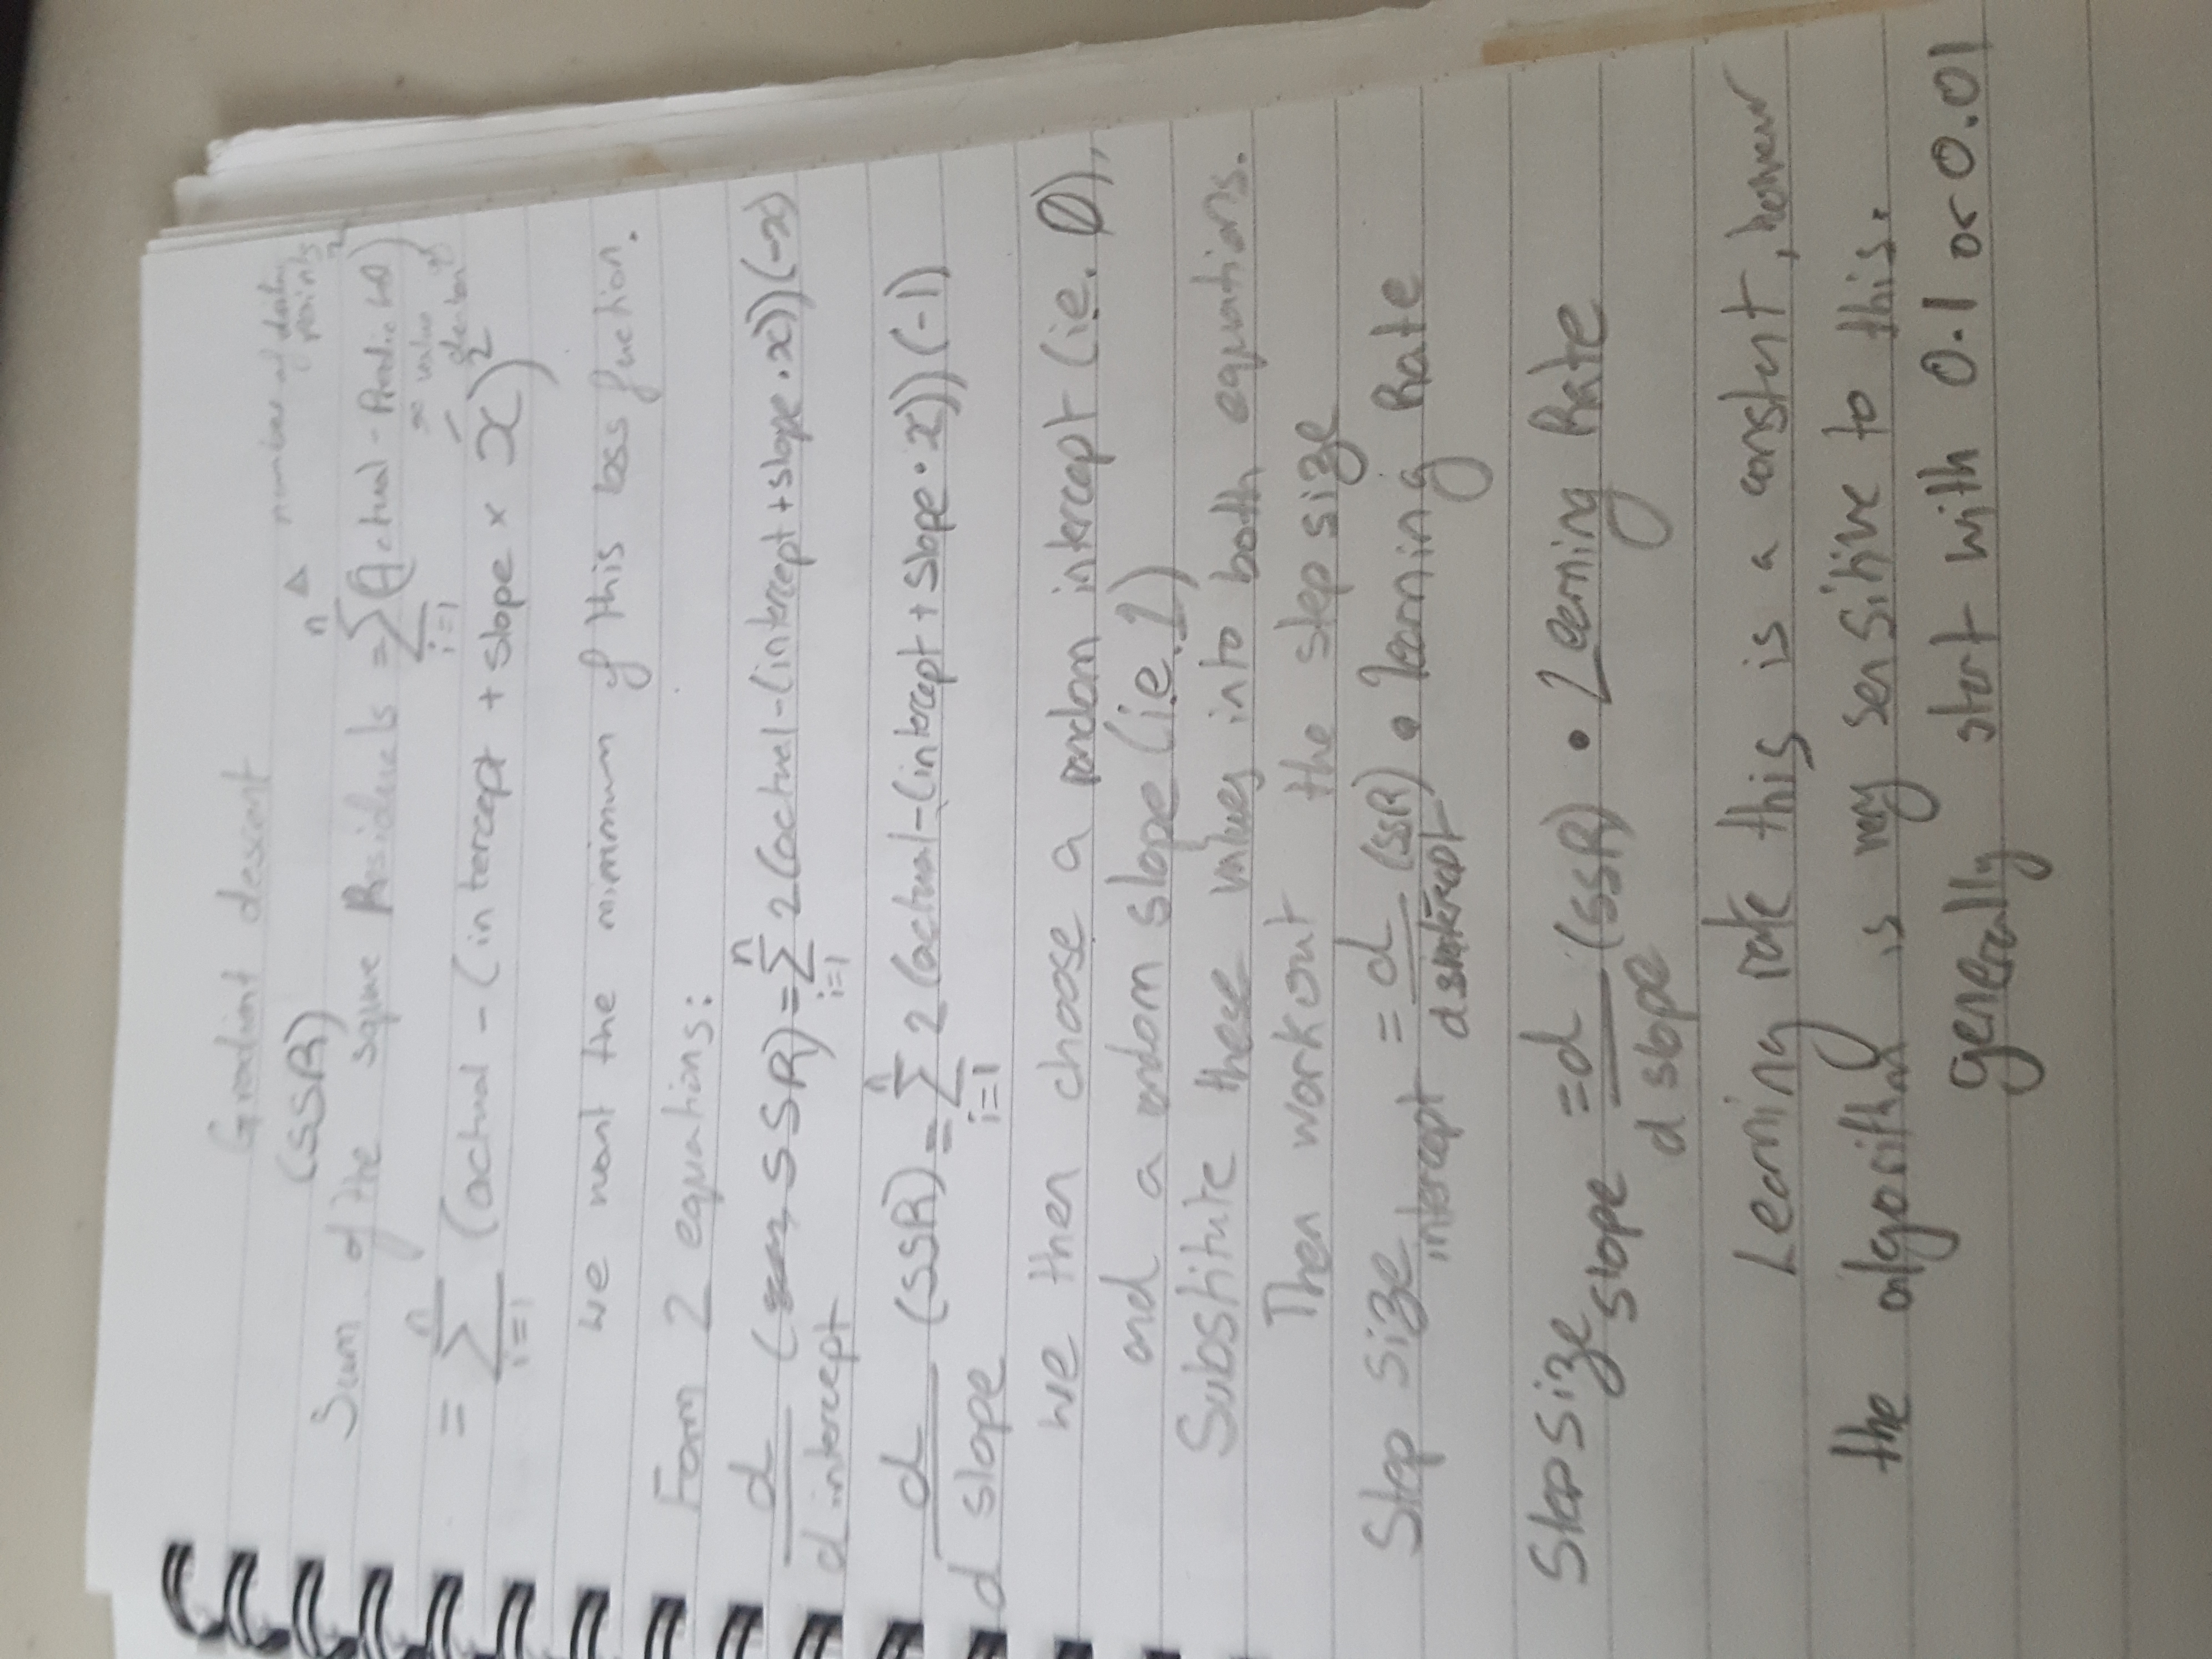 Gradient descent
(SSR)
n △ number of data points
Sum of the square Residuals = Σ (Actual - Predicted)²
i=1
x value
n
= Σ (actual - (intercept + slope × x)²
i=1
we want the minimum of this loss fuction.
Form 2 equations:
d/d intercept (SSR) = n Σ i=1 2(actual-(intercept+slope·x))(-x)
d/d slope (SSR) = n Σ i=1 2(actual-(intercept+slope·x))(-1)
we then choose a random intercept (ie. 0),
and a random slope (i.e. 1)
Substitute these values into both equations.
Then workout the step size
Step size intercept = d/d intercept (SSR) • learning Rate
Step size slope = d/d slope (SSR) • Learning Rate
Learning rate this is a constant, however
the algorithm is very sensitive to this.
generally start with 0.1 or 0.01